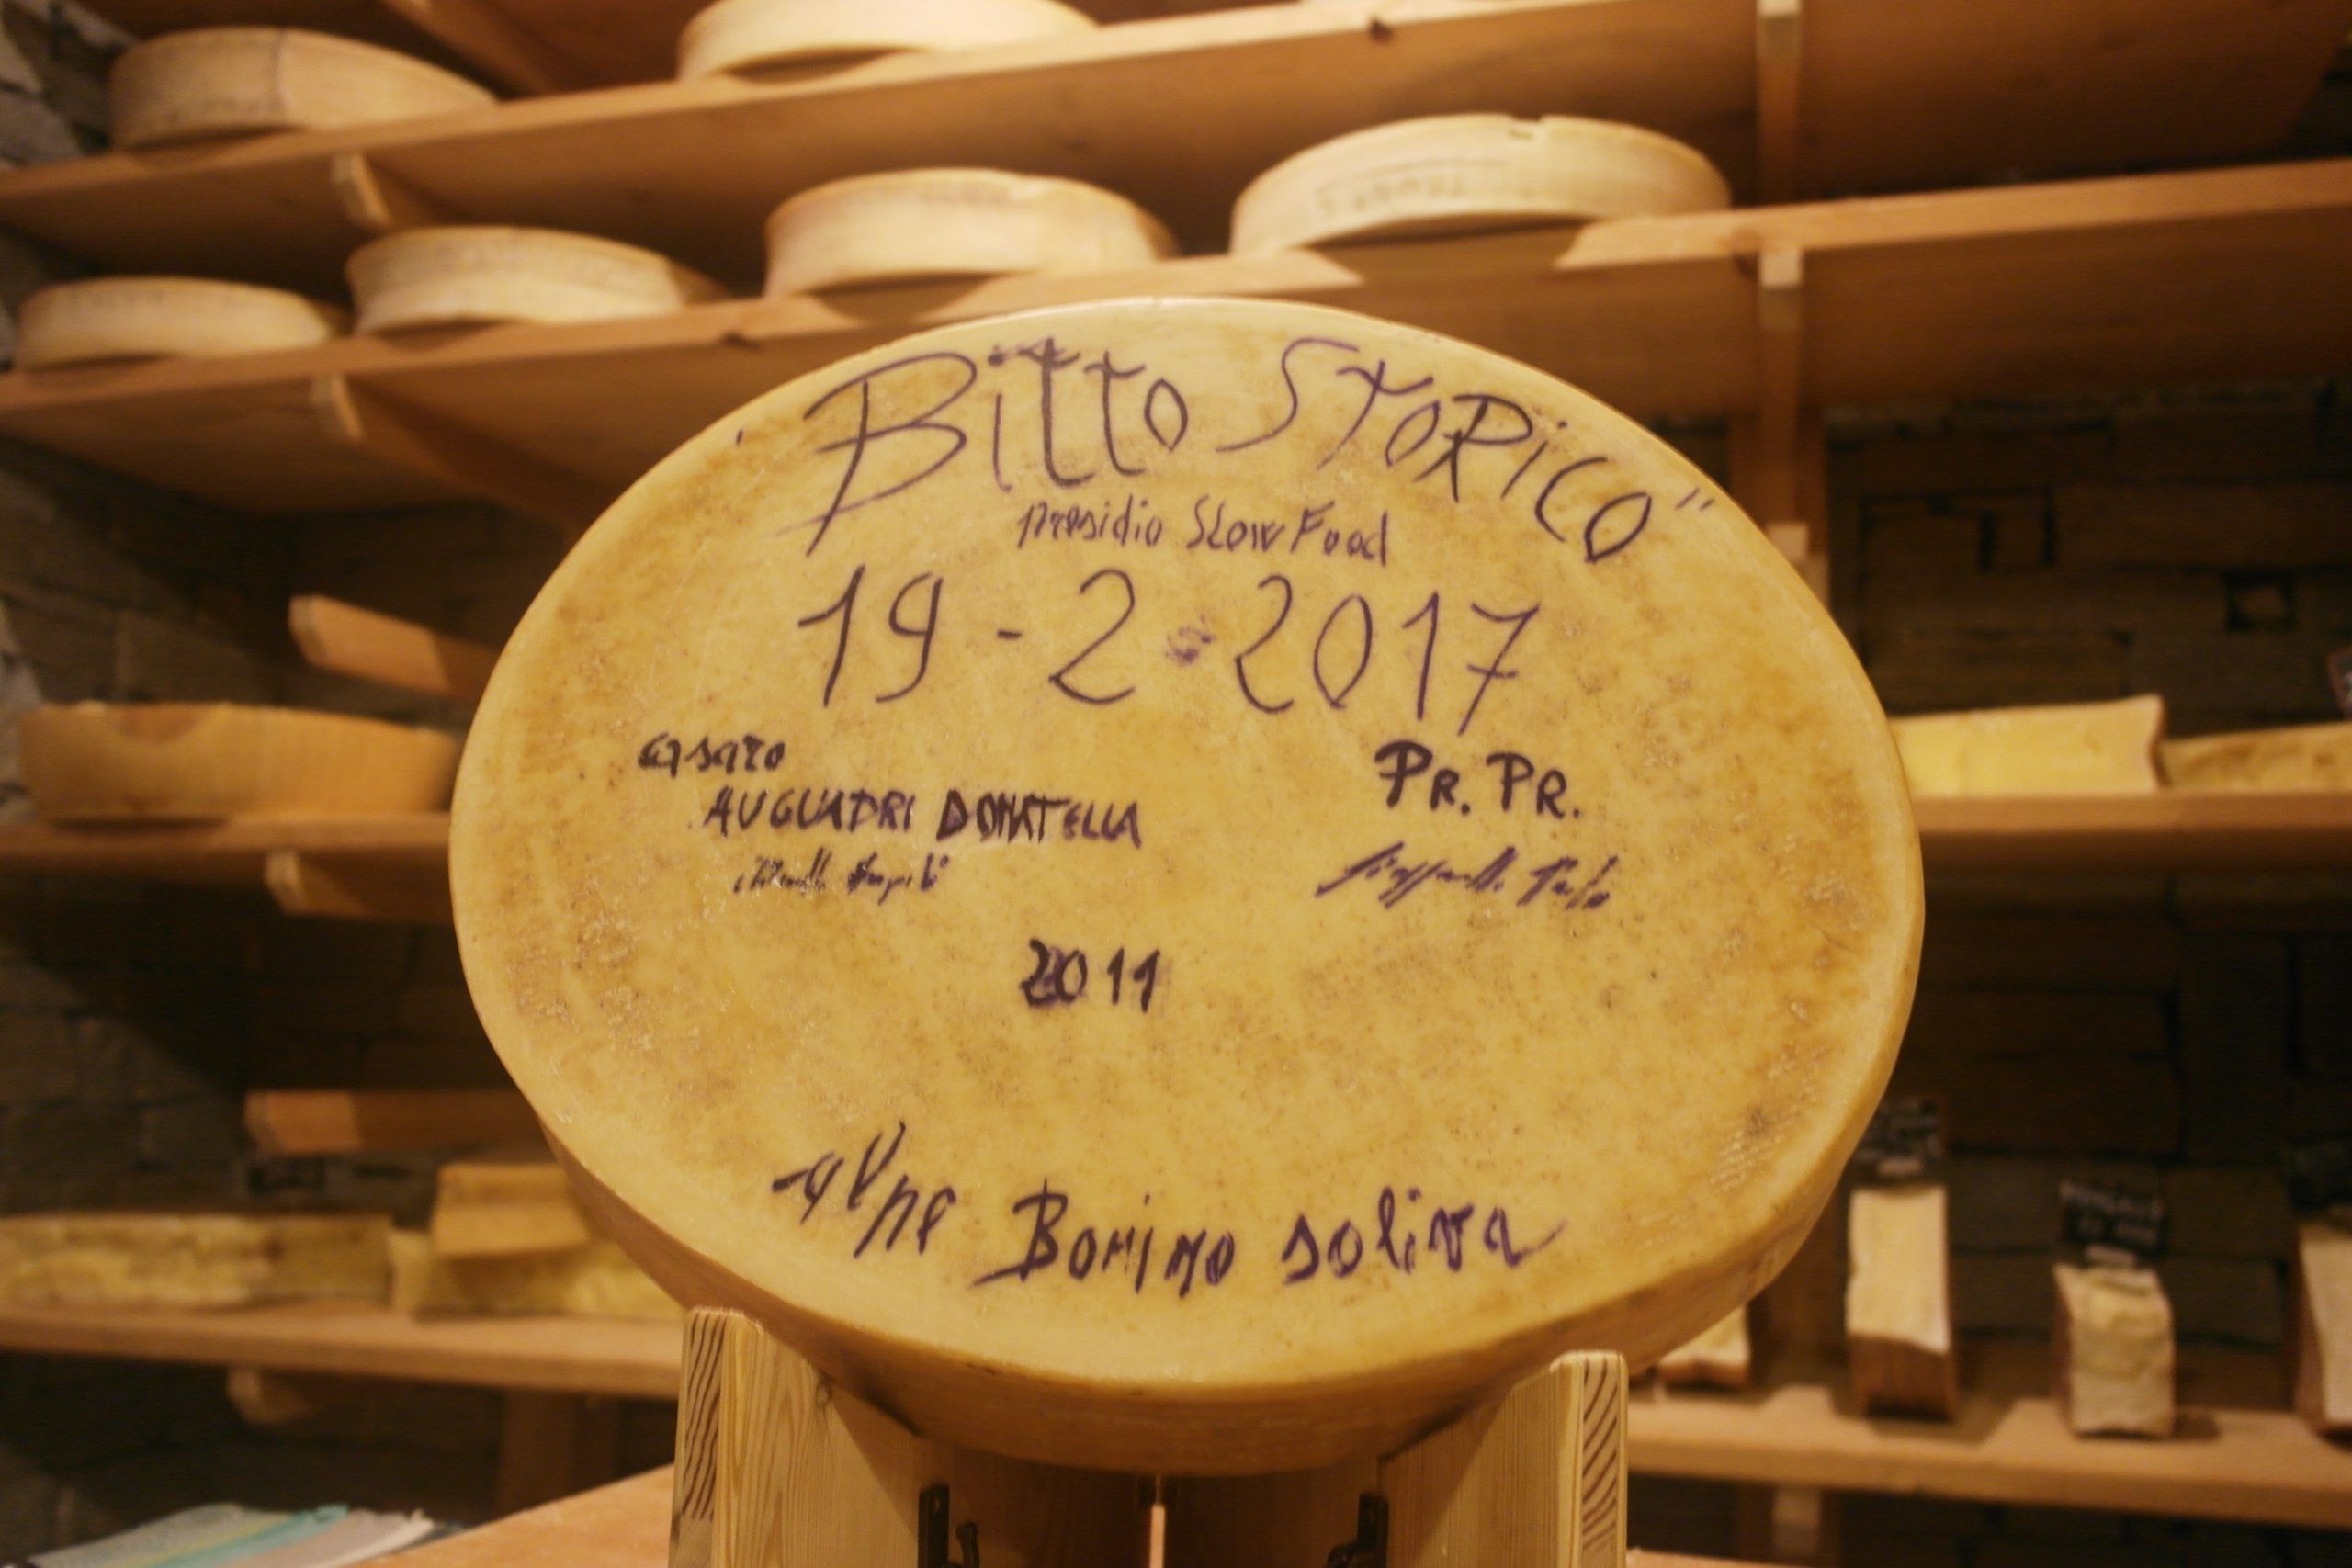 "Bitto STORICO"
Presidio Slow Food
19-2-2017
casaro
AUGUADRI DONATELLA
PR. PR.
2011
alpe Bomino soliva